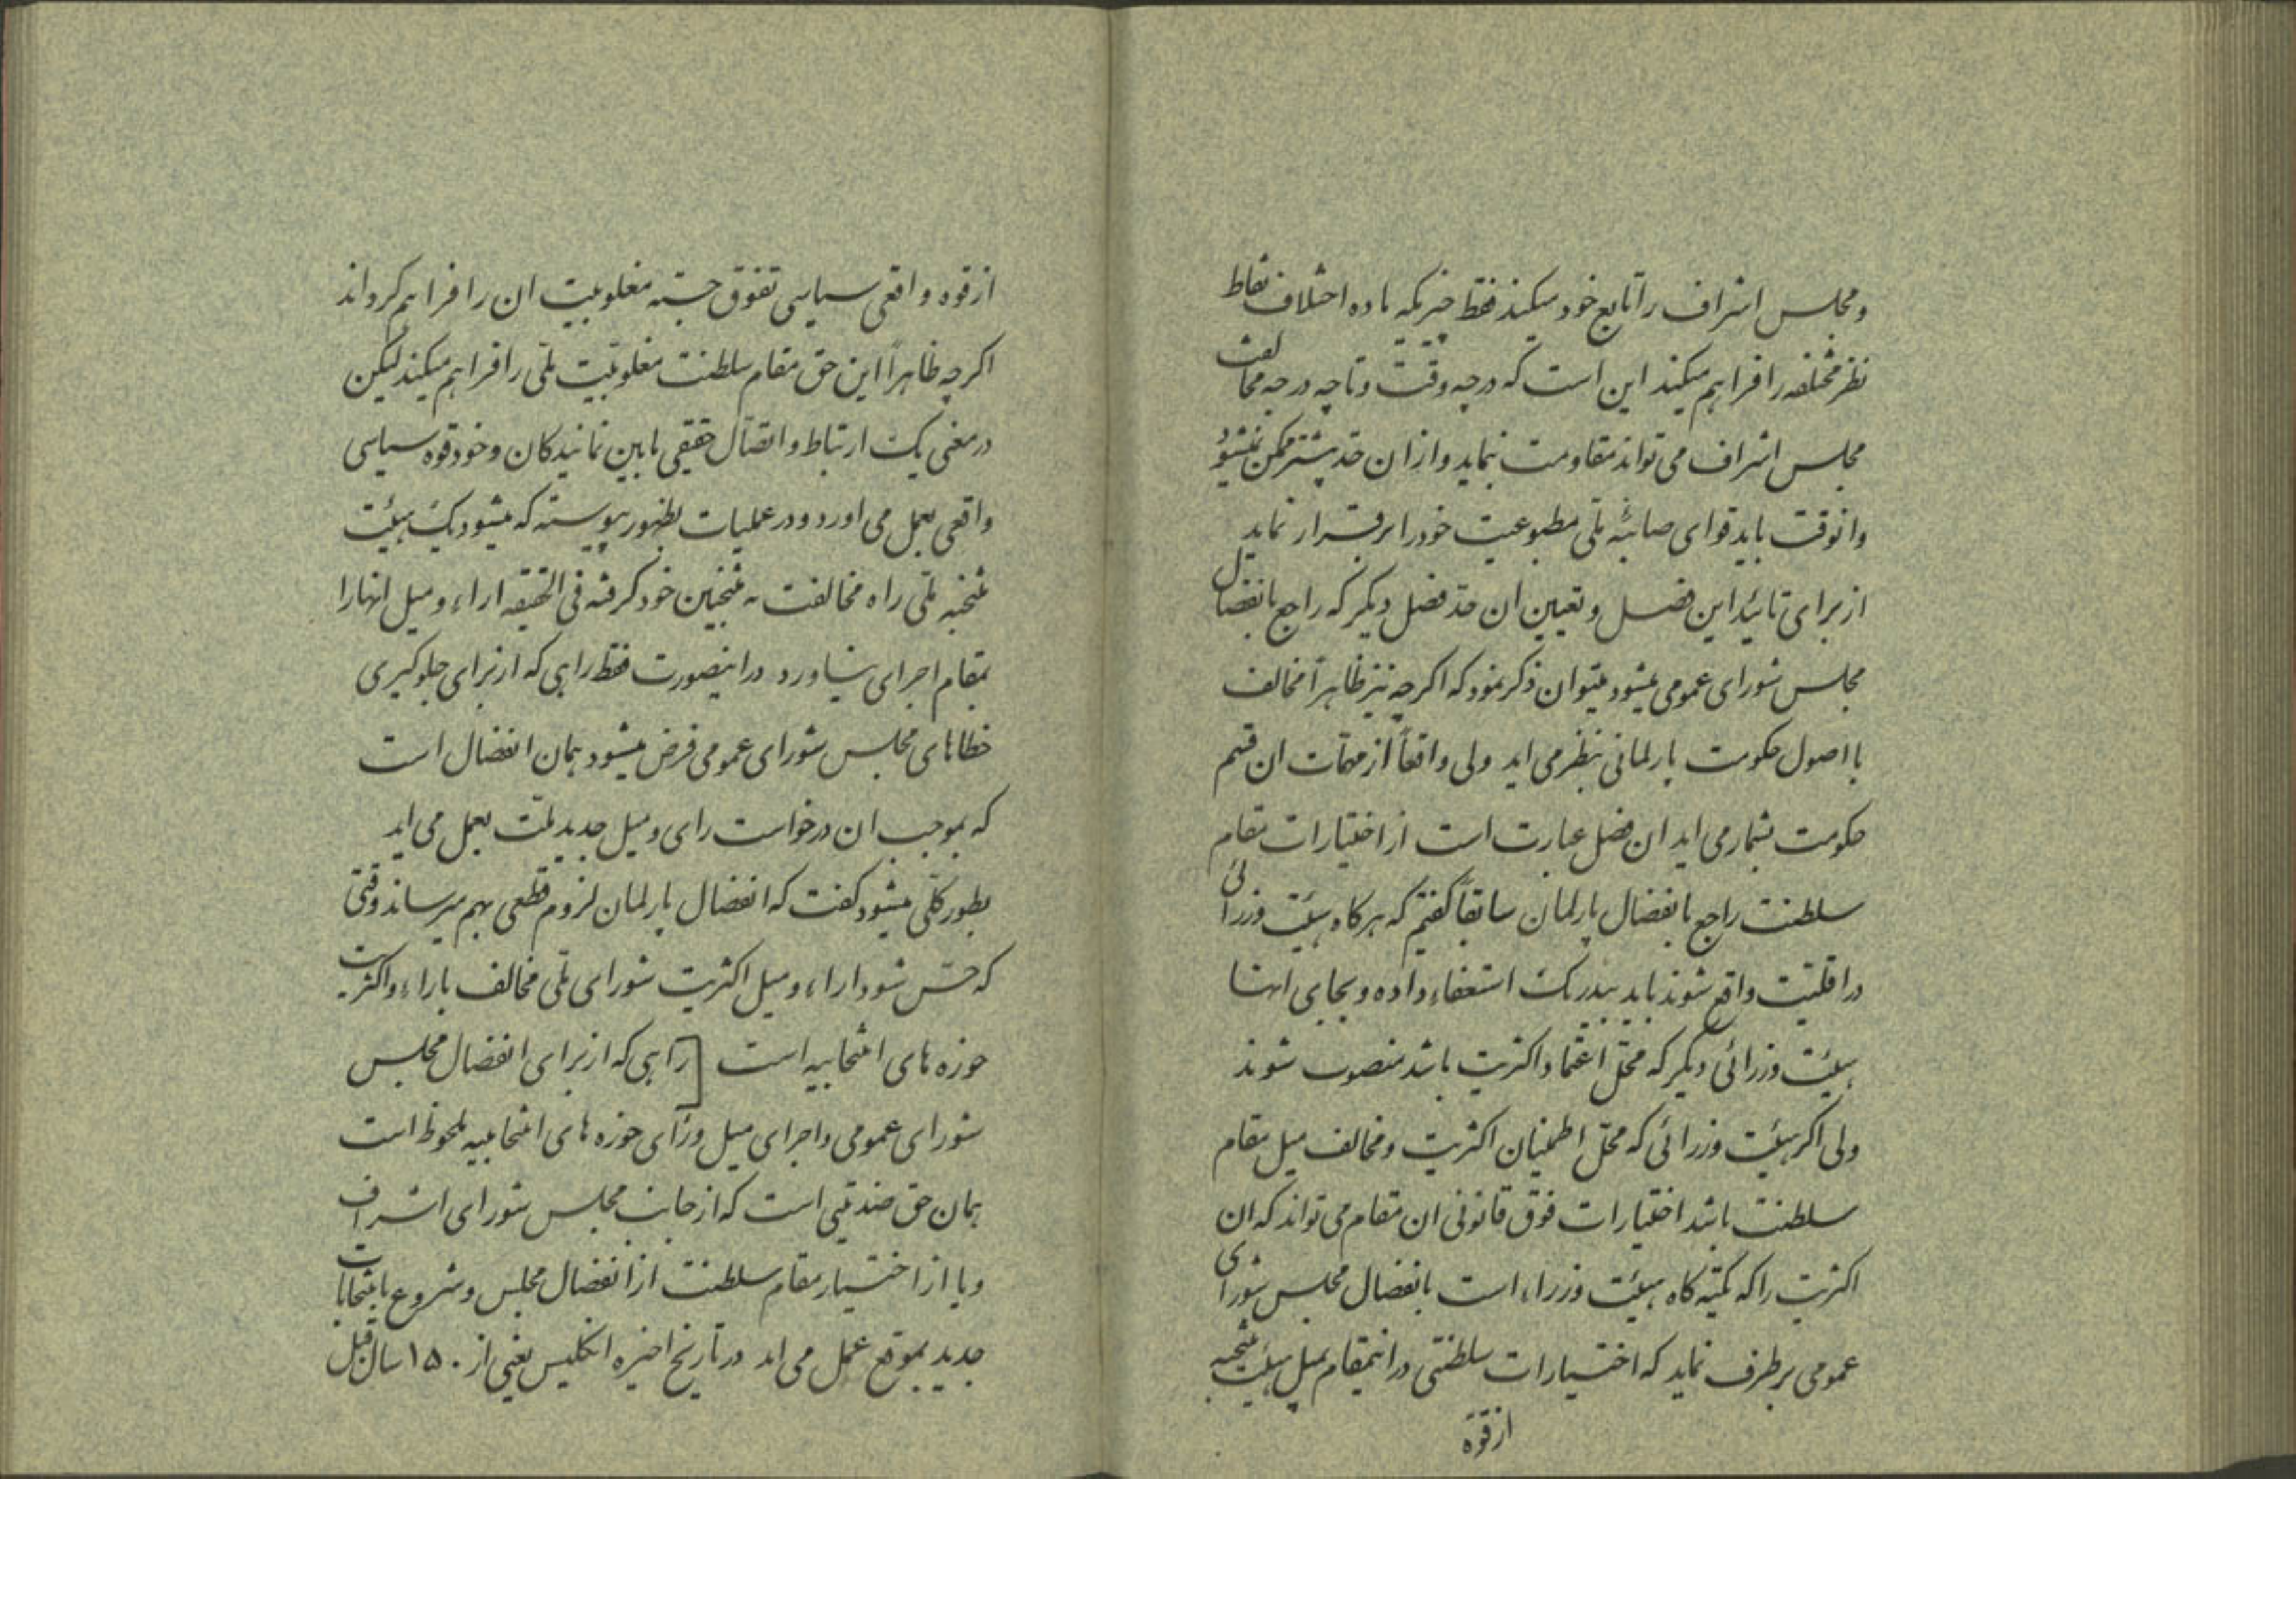 ومجلس اشراف را تابع خود میکند فقط چیزیکه ماده اختلاف نقاط
نظر مختلفه را فراهم میکند این است که در چه وقت و تا چه درجه مخالفت
مجلس اشراف می تواند مقاومت نماید و از ان حد بیشتر ممکن نمیشود
وانوقت باید قوای صائبه ملی مطبوعیت خود را برقرار نماید
از برای تائید این فصل و تعیین ان حد فصل دیگر که راجع بانفصال
مجلس شورای عمومی میشود میتوان ذکر نمود که اگرچه نیز ظاهراً مخالف
با اصول حکومت پارلمانی بنظر می اید ولی واقعاً از مهمات ان قسم
حکومت بشمار می اید ان فصل عبارت است از اختیارات مقام
سلطنت راجع بانفصال پارلمان سابقاً گفتیم که هرگاه هیئت وزرائی
در اقلیت واقع شوند باید بیدرنگ استعفاء داده و بجای انها
هیئت وزرائی دیگر که محل اعتماد اکثریت باشد منصوب شوند
ولی اگر هیئت وزرائی که محل اطمینان اکثریت و مخالف میل مقام
سلطنت باشد اختیارات فوق قانونی ان مقام می تواند که ان
اکثریت را که تکیه گاه هیئت وزراء است بانفصال مجلس شورای
عمومی برطرف نماید که اختیارات سلطنتی در اینمقام بمیل هیئت منتخبه
از قوه
از قوه واقعی سیاسی تفوق جسته مغلوبیت ان را فراهم کرداند
اگرچه ظاهراً این حق مقام سلطنت مغلوبیت ملی را فراهم میکند لیکن
در معنی یک ارتباط و اتصال حقیقی مابین نمایندکان و خود قوه سیاسی
واقعی بعمل می اورد و در عملیات بظهور پیوسته که میشود یک هیئت
منتخبه ملی راه مخالفت به منتخبین خود گرفته فی الحقیقه اراء و میل انها را
بمقام اجرای نیاورد در اینصورت فقط راهی که از برای جلوگیری
خطاهای مجلس شورای عمومی فرض میشود همان انفصال است
که بموجب ان درخواست رای و میل جدید ملت بعمل می اید
بطور کلی میشود گفت که انفصال پارلمان لزوم قطعی بهم میرساند وقتی
که حس شود اراء و میل اکثریت شورای ملی مخالف با اراء و اکثریت
حوزه های انتخابیه است [راهی که از برای انفصال مجلس
شورای عمومی و اجرای میل و رای حوزه های انتخابیه ملحوظ است
همان حق ضدیتی است که از جانب مجلس شورای اشراف
و یا از اختیار مقام سلطنت از انفصال مجلس و شروع بانتخابات
جدید بموقع عمل می اید در تاریخ اخیره انگلیس یعنی از ۱۵۰ سال قبل